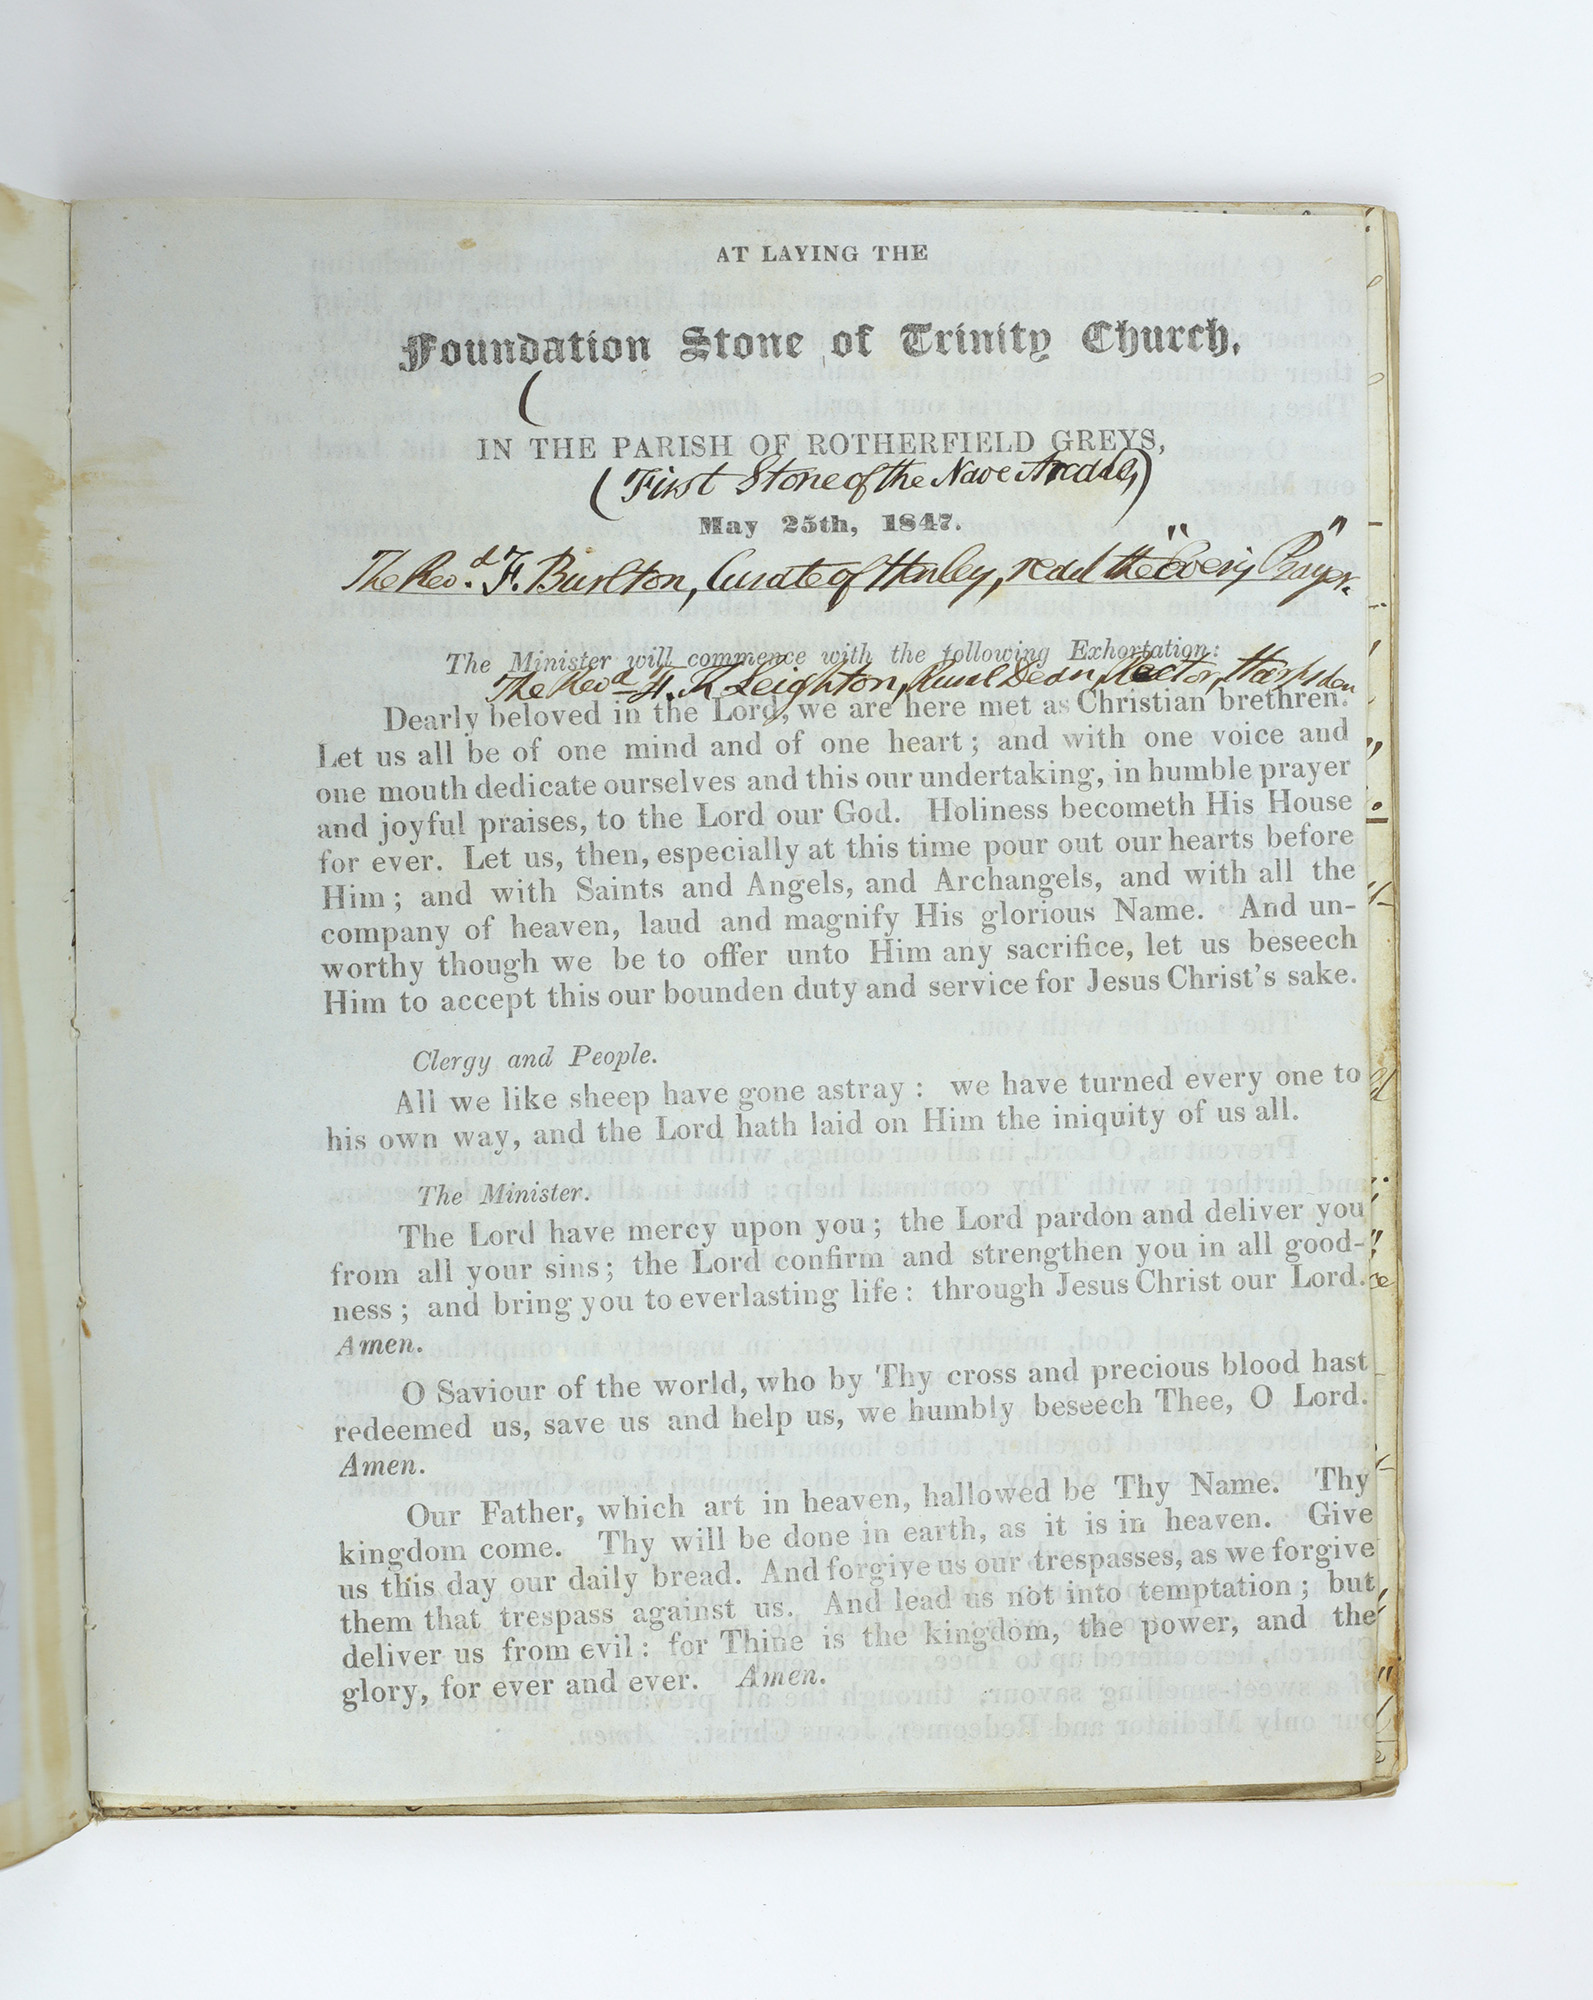 AT LAYING THE
Foundation Stone of Trinity Church,
(
IN THE PARISH OF ROTHERFIELD GREYS,
(First Stone of the Nave Arcade,)
May 25th, 1847.
The Revd. F. Burlton, Curate of Henley, read the "Eveng Prayer."
The Minister will commence with the following Exhortation:
The Revd F. K. Leighton, Rural Dean, Rector, Harpsden
Dearly beloved in the Lord, we are here met as Christian brethren.
Let us all be of one mind and of one heart; and with one voice and
one mouth dedicate ourselves and this our undertaking, in humble prayer
and joyful praises, to the Lord our God. Holiness becometh His House
for ever. Let us, then, especially at this time pour out our hearts before
Him; and with Saints and Angels, and Archangels, and with all the
company of heaven, laud and magnify His glorious Name. And un-
worthy though we be to offer unto Him any sacrifice, let us beseech
Him to accept this our bounden duty and service for Jesus Christ's sake.
Clergy and People.
All we like sheep have gone astray: we have turned every one to
his own way, and the Lord hath laid on Him the iniquity of us all.
The Minister.
The Lord have mercy upon you; the Lord pardon and deliver you
from all your sins; the Lord confirm and strengthen you in all good-
ness; and bring you to everlasting life: through Jesus Christ our Lord.
Amen.
O Saviour of the world, who by Thy cross and precious blood hast
redeemed us, save us and help us, we humbly beseech Thee, O Lord.
Amen.
Our Father, which art in heaven, hallowed be Thy Name. Thy
kingdom come. Thy will be done in earth, as it is in heaven. Give
us this day our daily bread. And forgive us our trespasses, as we forgive
them that trespass against us. And lead us not into temptation; but
deliver us from evil: for Thine is the kingdom, the power, and the
glory, for ever and ever. Amen.